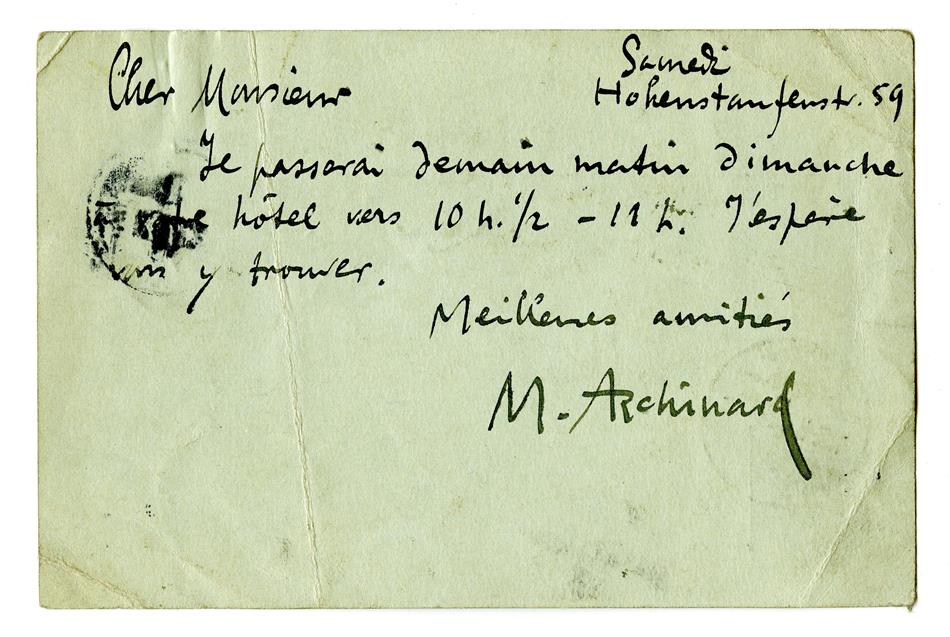 Samedi
Cher Monsieur Hohenstaufenstr. 59
Je passerai demain matin dimanche
hôtel vers 10 h. 1/2 - 11 h. J'espère
vous y trouver.
Meilleures amitiés
M. Archinard